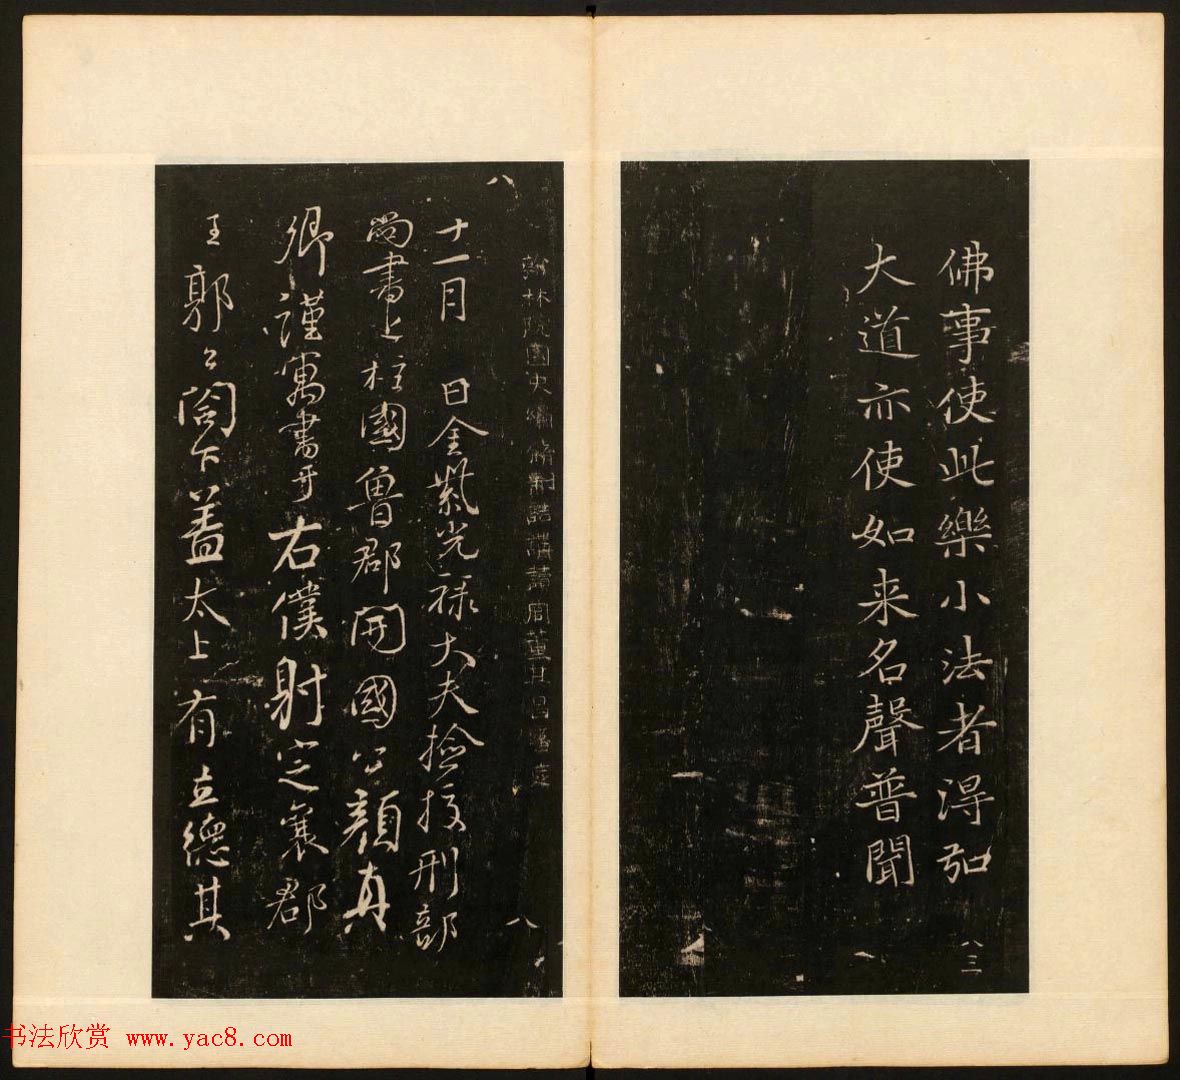 佛事使此樂小法者得如
大道亦使如来名聲普聞
八三
翰林院國史編修制誥講讀官董其昌臨
八
十一月 日金紫光禄大夫撿挍刑部
尚書上柱國魯郡開國公顏真
卿謹寓書于右僕射定襄郡
王郭公閤下蓋太上有立德其
八
书法欣赏 www.yac8.com